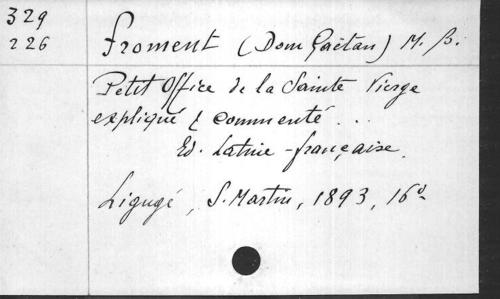 329
226
Froment (Dom Gaëtan) M. B.
Petit Office de la Sainte Vierge
expliqué & commenté ...
Ed. Latine-française.
Ligugé, S. Martin, 1893, 16º